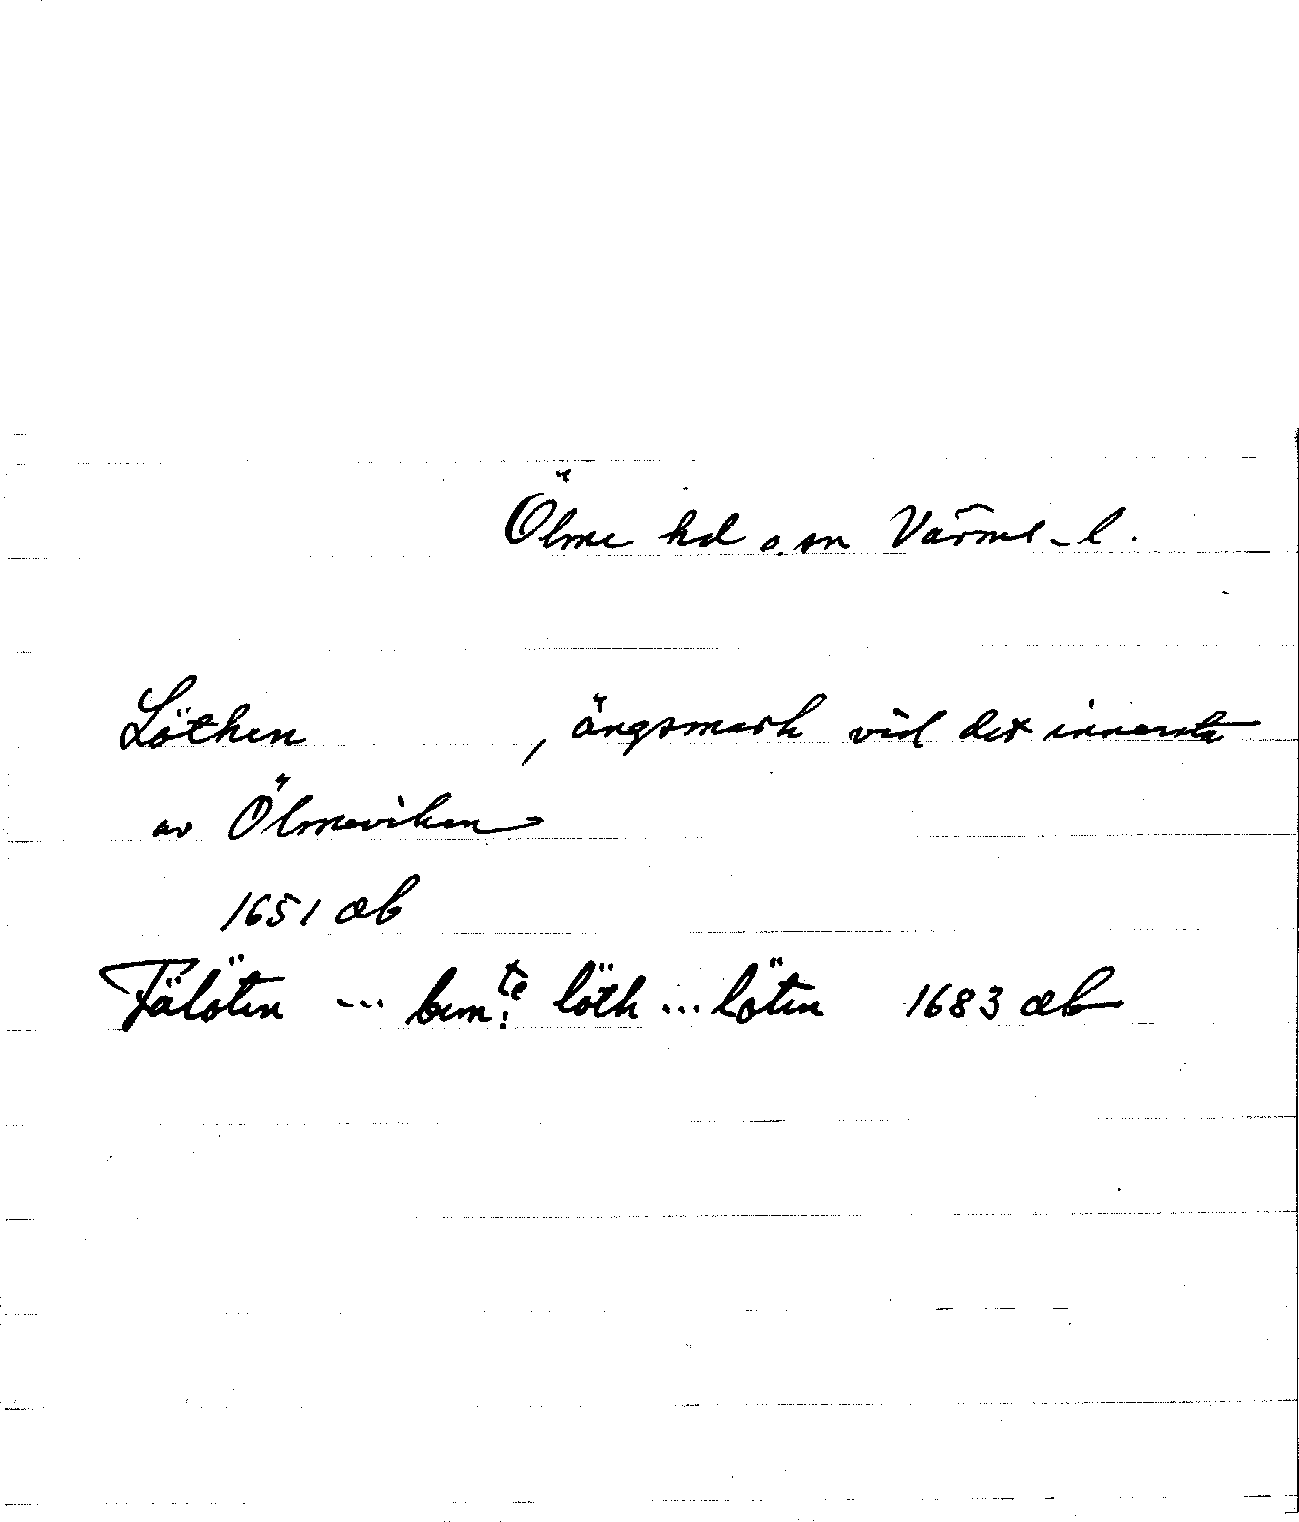 Ölme hd o. sn Värml. l.
Löthen , ängsmark vid det innersta
av Ölmeviken
1651 æb
Fälöten ... bem:te löth ... löten 1683 æb